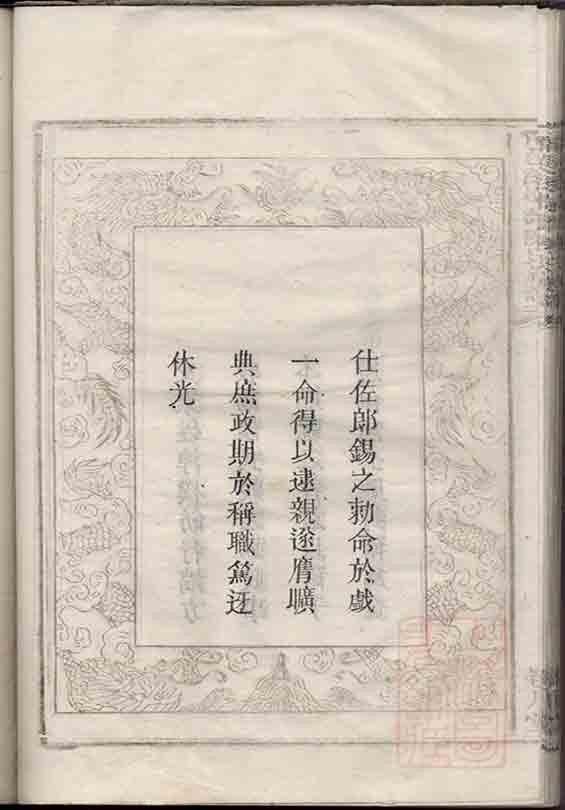 仕佐郎錫之勅命於戲
一命得以逮親遂膺曠
典庶政期於稱職篤迓
休光